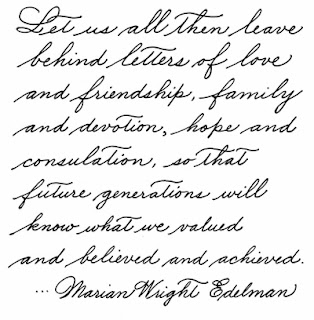 Let us all then leave
behind letters of love
and friendship, family
and devotion, hope and
consulation, so that
future generations will
know what we valued
and believed and achieved.
... Marian Wright Edelman